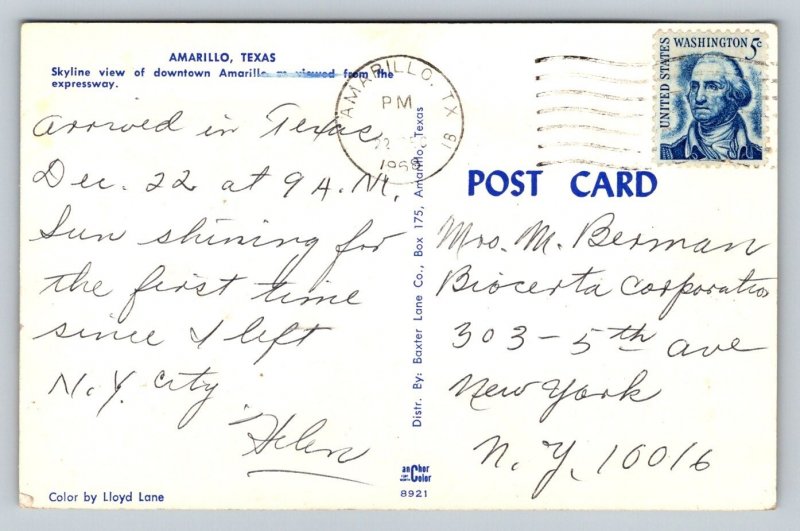 AMARILLO, TEXAS
Skyline view of downtown Amarillo as viewed from the
expressway.
arrived in Texas
Dec. 22 at 9 A.M.
Sun shining for
the first time
since I left
N.Y. City
Helen
Color by Lloyd Lane
Distr. By: Baxter Lane Co., Box 175, Amarillo, Texas
anChor
Color
8921
AMARILLO, TX
PM
22
1968
UNITED STATES
WASHINGTON 5c
POST CARD
Mrs. M. Berman
Biocerta Corporation
303 - 5th ave
New York
N.Y. 10016